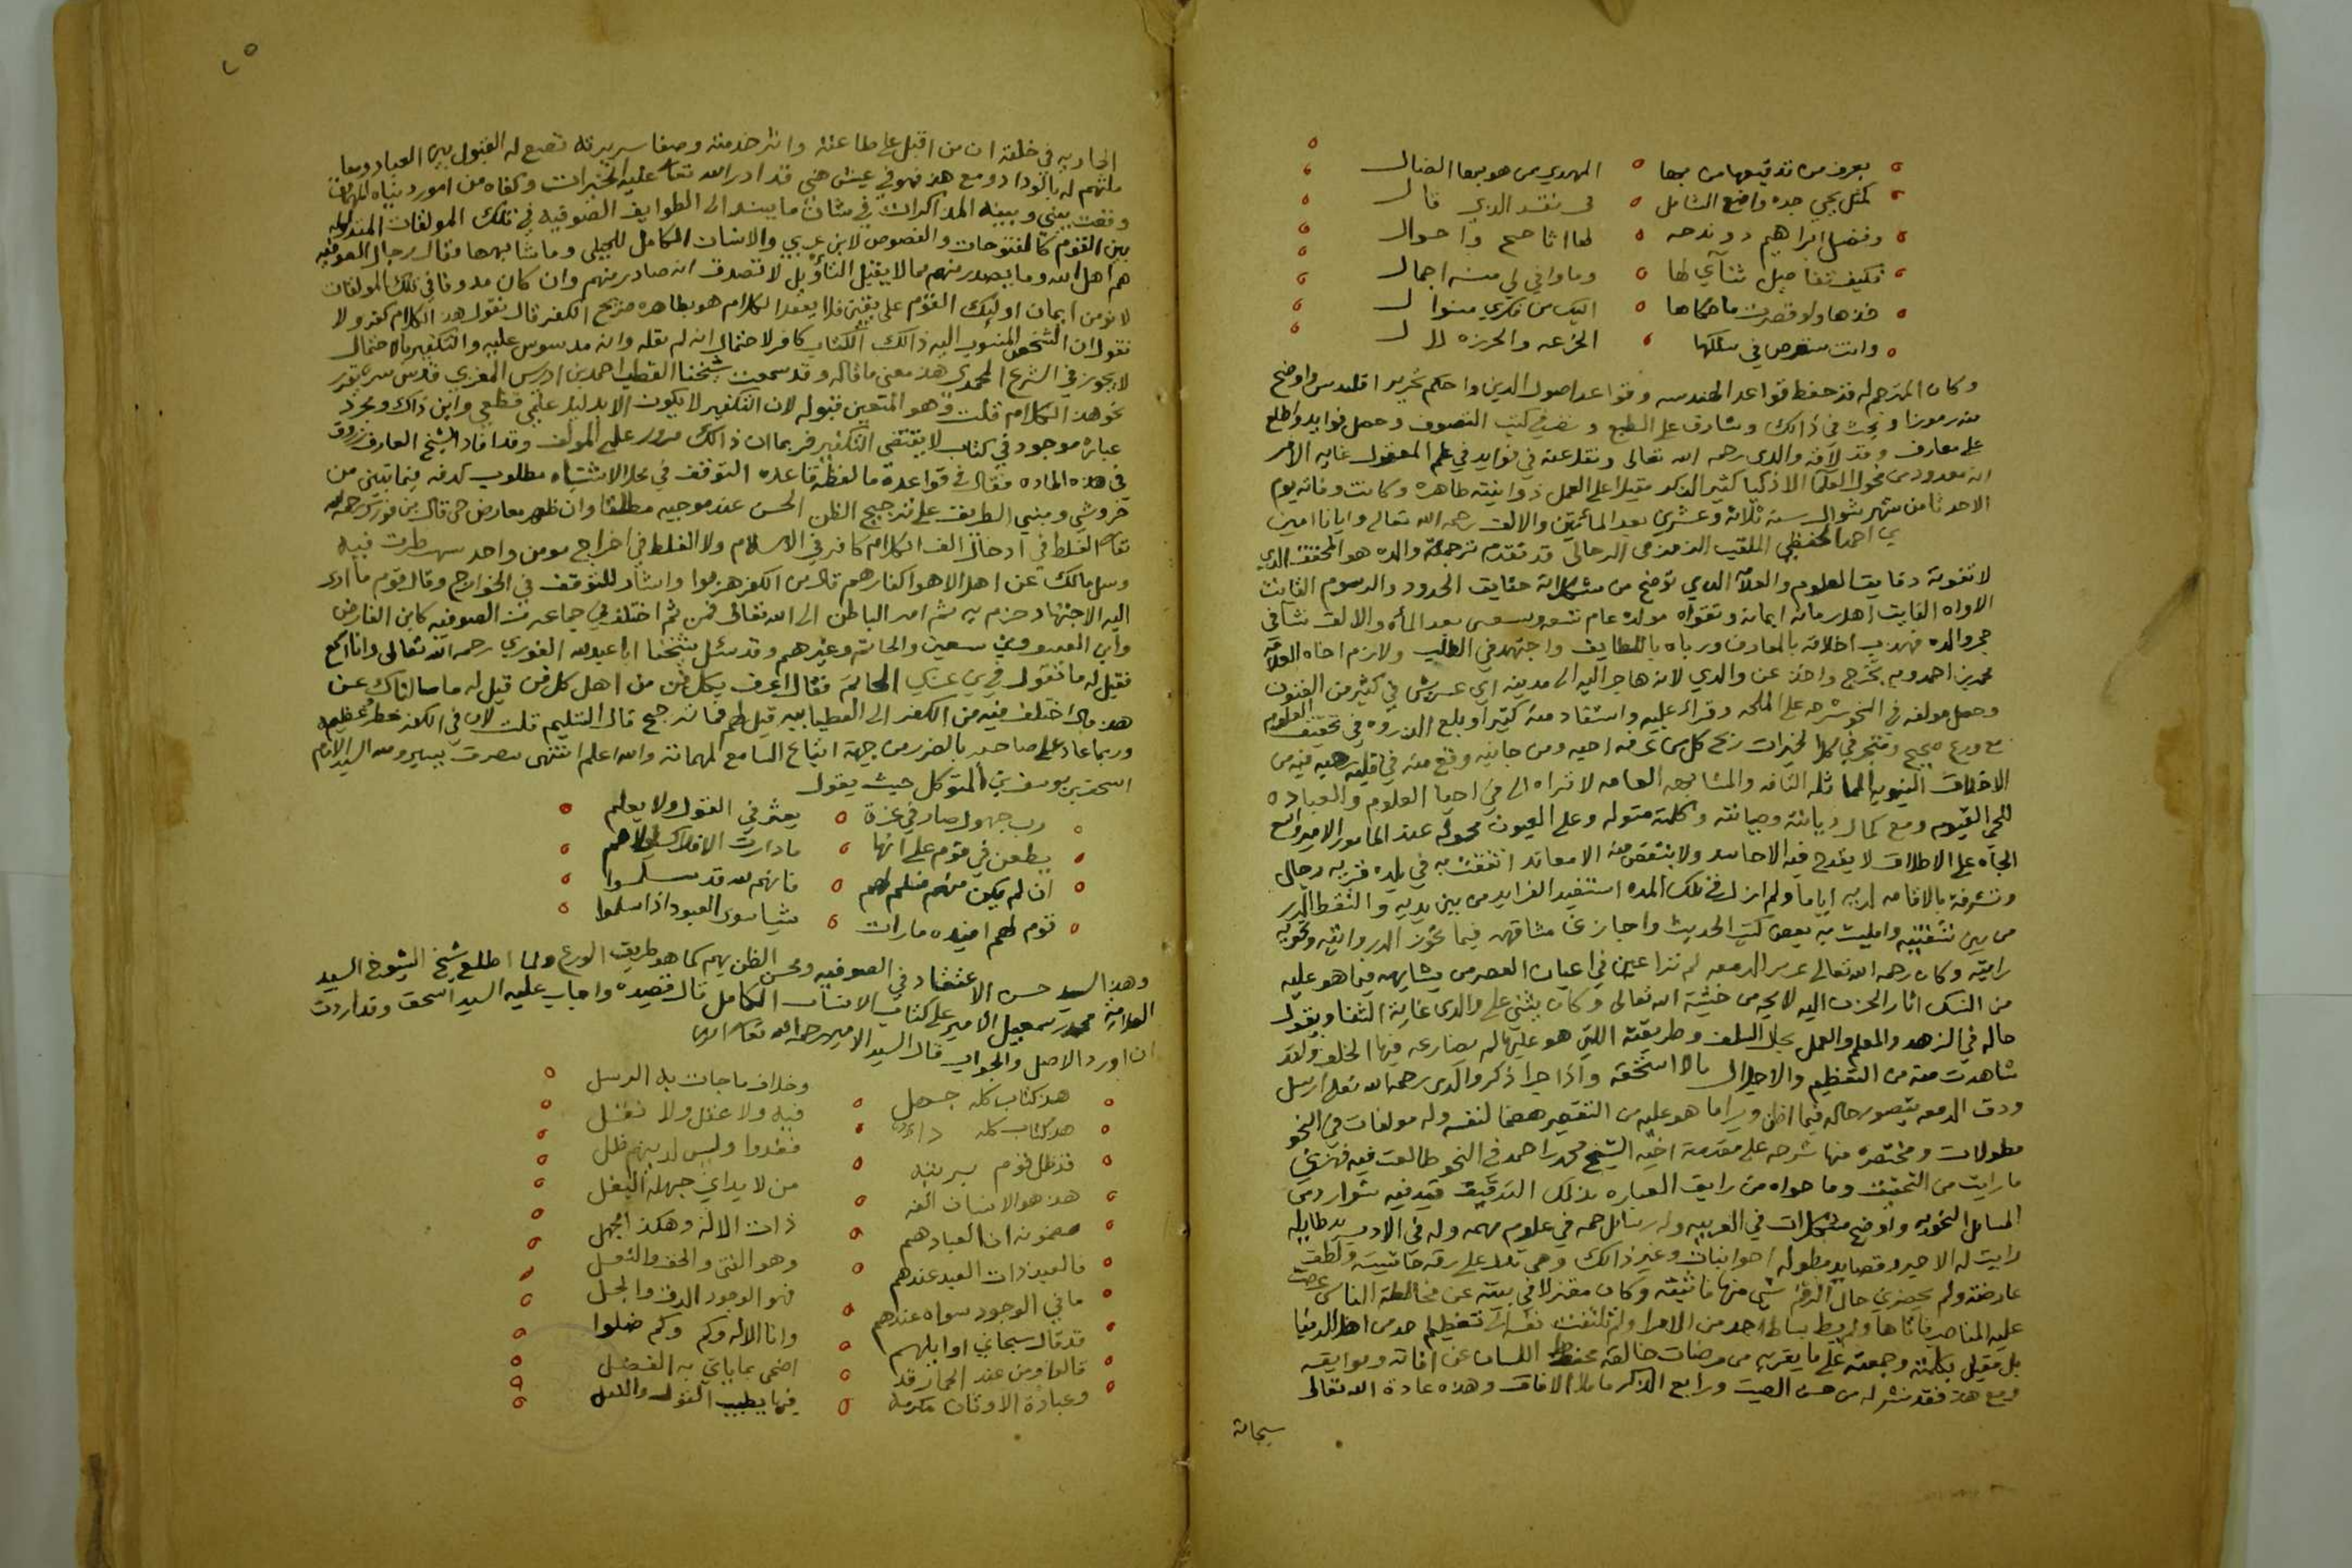 بعرف من تدقيعها من بها المهدي من هو بها الضال
كمثل يحيى جده واضع الشامل في نقد الدي قال
وفضل ابراهيم دوندحه لها اتا صح واحوال
فكيف تفاصيل ثنآي لها وما وافي لي منه اجمال
خذها ولو قصرت ما حكاها اليك من فكري منوال
وانت ستغرص في سلكها
وكان المترجم له قد حفظ قواعد الهندسه وقواعد اصول الدين واحكم تحرير اقليدس واوضح
رموزا وبحث في ذالك وشارف على الطبع ونظر في كتب التصوف وحصل فوايد واطلع
على معارف وقد لاقه والدي رحمه الله تعالى ونقل عنه في فوايد في علم المعقول غايه الامر
انه معدود من فحول العلما الاذكيا كثير الذكر مقبلا على العمل ذو انيته طاهره وكانت وفاته يوم
الاحد ثامن شهر شوال سنة ثلاثه وعشرين بعد المأتين والالف رحمه الله تعالى وايانا امين
احمد الحفظي الملقب الزمزمي الرحالي قد تقدم ترجمة والده هو المحقق الدي
لا تفوته دقايق العلوم والعلآ الدي توضح من مشكلاته حقايق الحدود والرسوم القانت
الاواه الفايت اهل زمانه ايمانه وتقواه مولده عام تسعه وسبعين بعد المأه والالف نشا في
حجر والده فهذب اخلاقه بالمعارف ورباه باللطايف واجتهد في الطلب ولازم اخاه العلامه
محمد بن احمد وبه تخرج واخذ عن والدي لانه هاجر اليه الى مدينه ابي عريش في كثير من الفنون
وحصل مولفه في النحو شرحه على الملحه وقراه عليه واستفاد منه كثيرا وبلغ الذروه في تحقيق العلوم
مع ورع صحيح ومتجر في الخيرات ربح كل من عرفه احبه ومن جانبه وقع منه في قلبه هيبه فيه من
الاخلاق النبويه المماثله التامه والمشابهه العامه لا تراه الى في احيا العلوم والعباده
للحي القيوم ومع كمال ديانته وصيانته وكلمته مقبوله وعلى العيون محموله عند المامور والامير واسع
الجاه على الاطلاق لا يقدح فيه الا حاسد ولا ينتقص منه الا معاند اتفقت به في بلده قريه رجالى
وتشرفت بالاقامه لديه اياما ولم ازل في تلك المده استفيد الفرايد من بين يديه والتقط الدرر
من بين شفتيه وامليت به بعض كتب الحديث واجازني مشافهه فيما تجوز الدر وايته وتحويه
رايته وكان رحمه الله تعالى غزير الدمعه لم ترا عين في اعيان العصر من يشابهه فيما هو عليه
من النسك اثار الحزن اليه لايحه من خشية الله تعالى وكان يثني على والدي غاية الثنا ويقول
حاله في الزهد والعلم والعمل بحال السلف وطريقته اللتي هو عليها لم يضارعه فيها الخلف ولقد
شاهدت منه من التعظيم والاجلال مالا استحقه واذا جرا ذكر والدي رحمه الله تعالى ارسل
ودق الدمعه بتصور حاله فيما اظن ويرا ما هو عليه من التقصير هضما لنفسه وله مولفات في النحو
مطولات ومختصره منها شرحه على مقدمة اخيه الشيخ محمد بن احمد في النحو طالعت فيه فبهرني
ما رايت من التحقيق وما حواه من رايق العباره بذلك التدقيق قيد فيه شوارد من
المسايل النحويه واوضح مشكلات في العربيه وله رسايل جمه في علوم مهمه وله في الادب يد طايله
رايت له الاجيد وقصايد مطوله اخوانيات وغير ذالك وهي تدل على رقه حاشيته ولطف
عارضته ولم يحضرني حال الرقم شي منها فاثبته وكان معتزلا في بيته عن مخالطة الناس عرضت
عليه المناصب فاباها ولم يط بساط احد من الامرا ولم تلتفت نفسه الى تعظيم احد من اهل الدنيا
بل مقبل بكليته وجمعته على ما يقربه من مرضات خالقه محفظ اللسان عن افاته وبوايقه
ومع هذ فقد نشر له من حسن الصيت ورايع الذكر ما ملا الافاق وهذه عادة الله تعالى
سبحانه
الجاريه في خلقه ان من اقبل على طاعته واثر خدمته وصفا سريرته تضع له القبول بين العباد ومعا
ملتهم له بالوداد ومع هذ فهو في عيش هني قد ادر الله تعالى عليه الخيرات وكفاه من امور دنياه المهمات
وقعت بيني وبينه المذاكرات في شان ما ينسب الى الطوايف الصوفيه في تلك المولفات المتداوله
بين القوم كالفتوحات والفصوص لابن عربي والانسان الكامل للجيلى وما شابهها فقال رجال الصوفيه
هم اهل الله وما يصدر منهم مما لا يقبل التاويل لا نتصدق انه صادر منهم وان كان مدونا في تلك المولفات
لانومن ايمان اوليك القوم على يقين فلا يعقد الكلام هو بظاهره صريح الكفر قال نقول هذ الكلام كفر ولا
نقول ان الشخص المنسوب اليه ذالك الكتاب كافر لاحتمال انه لم يقله وانه مدسوس عليه والتكفير بالاحتمال
لا يجوز في الشرع المحمدي هذ معنى ما قاله وقد سمعت شيخنا القطب احمد بن ادريس المغربي قدس سره يقرر
نحو هذ الكلام قلت وهو المتعين قبوله لان التكفير لا يكون الا بدليل علمي قطعي واين ذاك ومجرد
عباره موجود في كتاب لا يقتضي التكفير فربما ان ذالك مزور على المولف وقد افاد الشيخ العارف زروق
في هذه الماده فقال في قواعده ما لفظه قاعده التوقف في محل الاشتباه مطلوب كعدمه فيما تبين من
خير وشر ومبني الطريق على ترجيح الظن الحسن عند موجبه مطلقا وان ظهر معارض حتى قال بن فورك رحمه الله
تعالى الغلط في ادخال الف الكلام كافر في الاسلام ولا الغلط في اخراج مومن واحد بشبهة ظهرت فيه
وسيل مالك عن اهل الاهوا اكفار هم قال من الكفر هربوا واشار للتوقف في الخوارج وقال قوم ما ادى
اليه الاجتهاد جزم به ثم امر الباطن الى الله تعالى فمن ثم اختلف في جماعه من الصوفيه كابن الفارض
وابن العربي وبن سبعين والحاتم وغيرهم وقد سئل شيخنا ابا عبدالله القوري رحمه الله تعالى وانا اسمع
فقيل له ما تقول في بن عربي الحاتمي فقال اعرف بكل فن من اهل كل فن قيل له ما سالناك عن
هذ قال اختلف فيه من الكفر الى القطبانيه قيل لهم فما ترجح قال التسليم قلت لان في الكفر خطر عظيم
وربما عاد على صاحبه بالضرر من جهة اتباع السامع لمبهماته والله اعلم انتهى بتصرف يسير ولله السيد الامام
اسحق بن يوسف بن المتوكل حيث يقول
رب جهول صار في غزة يعثر في القول ولا يعلم
يطعن في قوم على انها ما دارت الافلاك الا هم
ان لم يكن منهم فسلم لهم فانهم لله قد سلموا
قوم لهم افئده مارات شيا سوى المعبود اذ اسلموا
وهذا السيد حسن الاعتقاد في الصوفيه ومحسن الظن بهم كما هو طريق الورع ولما اطلع شيخ الشيوخ السيد
العلامة محمد بن اسمعيل الامير على كتاب الانسان الكامل قال قصيده واجاب عليه السيد اسحق وقد اردت
ان اورد الاصل والجواب قال السيد الامير رحمه الله تعالى
هذ كتاب كله جهل وخلاف ما جات به الرسل
هذ كتاب كله فيه ولا عقل ولا نقل
قد ظل قوم فغدوا وليس لدينهم ظل
هذ هو الانسان الفه من لا يداني جهله البغل
مضمونه ان العباد هم ذات الاله وهكذ الجهل
فالعبد ذات العبد عندهم
ما في الوجود سواه عندهم فهو الوجود الدق والجل
قد قال سبحاني اوايلهم وانا الاله وكم وكم ضلوا
اضحى بما ياتي به الفضل
وعبادة الاوثان مكرمة فيها يطيب القول والفعل